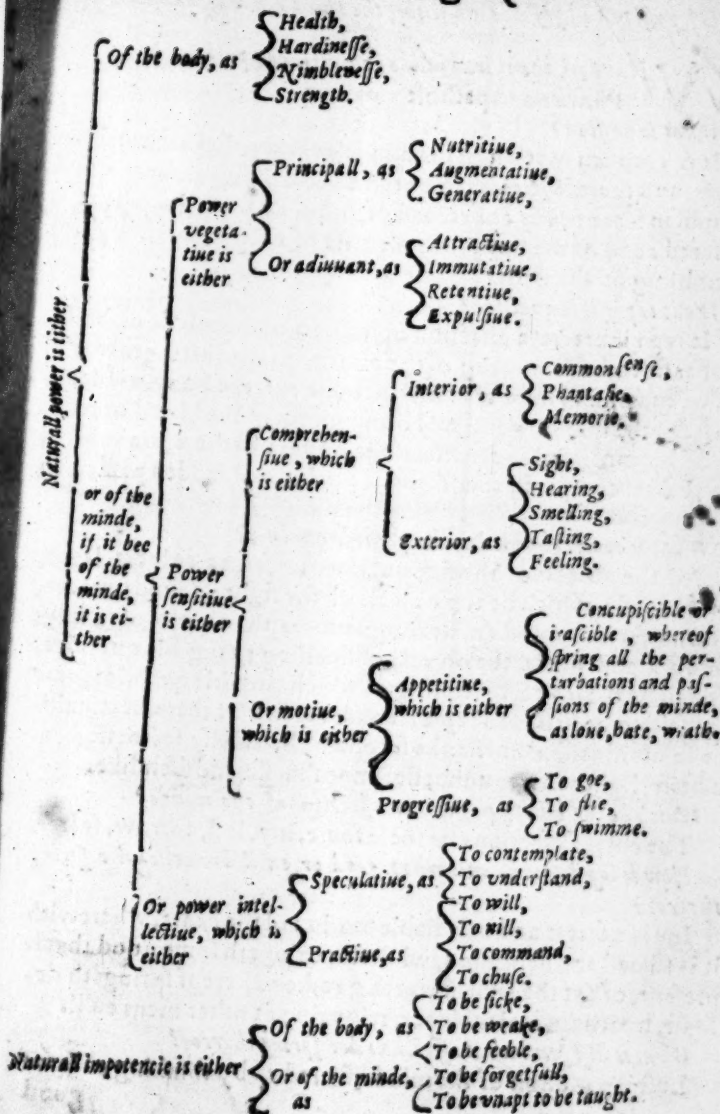 Naturall power is either
Of the body, as
Health,
Hardinesse,
Nimblenesse,
Strength.
or of the
minde,
if it bee
of the
minde,
it is ei-
ther
Power
vegeta-
tiue is
either
Principall, as
Nutritiue,
Augmentatiue,
Generatiue,
Or adiuuant, as
Attractiue,
Immutatiue,
Retentiue,
Expulsiue.
Power
sensitiue
is either
Comprehen-
siue, which
is either
Interior, as
Common sense,
Phantasie,
Memorie.
Exterior, as
Sight,
Hearing,
Smelling,
Tasting,
Feeling.
Or motiue,
which is either
Appetitiue,
which is either
Concupiscible or
irascible, whereof
spring all the per-
turbations and pas-
sions of the minde,
as loue, hate, wrath.
Progressiue, as
To goe,
To flie,
To swimme.
Or power intel-
lectiue, which is
either
Speculatiue, as
To contemplate,
To vnderstand,
Practiue, as
To will,
To nill,
To command,
To chuse.
Naturall impotencie is either
Of the body, as
To be sicke,
To be weake,
To be feeble,
Or of the minde,
as
To be forgetfull,
To be vnapt to be taught.